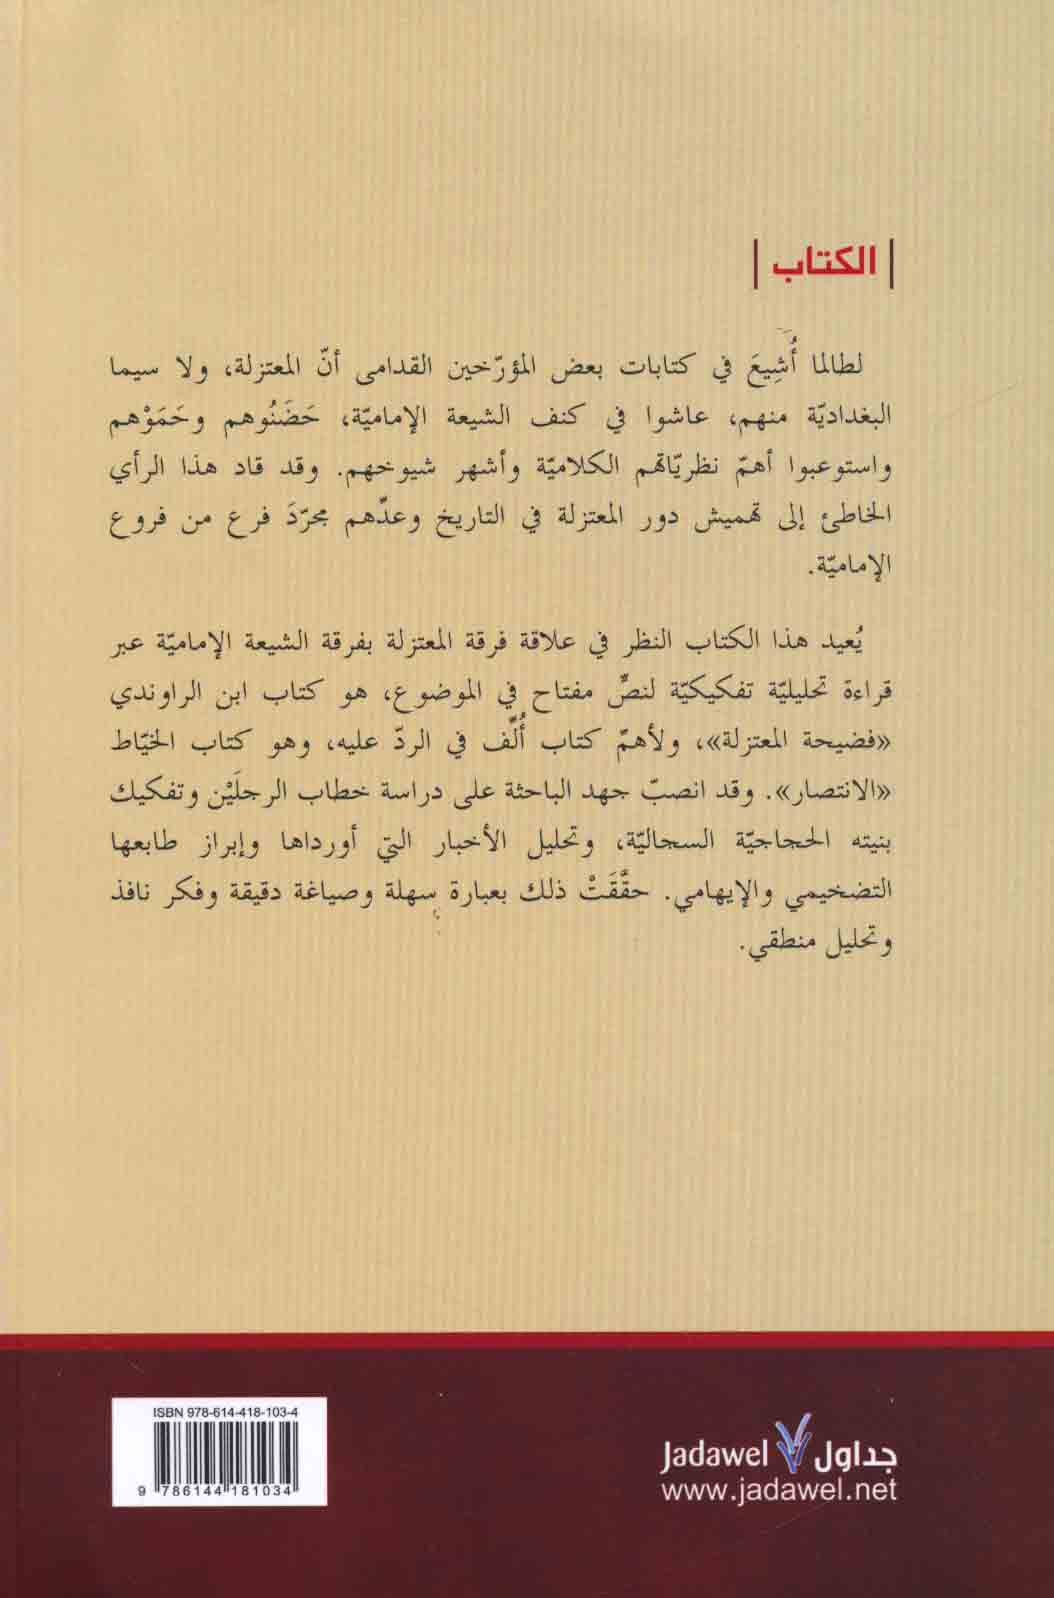 الكتاب
لطالما أُشِيعَ في كتابات بعض المؤرّخين القدامى أنّ المعتزلة، ولا سيما
البغداديّة منهم، عاشوا في كنف الشيعة الإماميّة، حَضَنُوهم وحَمَوْهم
واستوعبوا أهمّ نظريّاتهم الكلاميّة وأشهر شيوخهم. وقد قاد هذا الرأي
الخاطئ إلى تهميش دور المعتزلة في التاريخ وعدّهم مجرّدَ فرع من فروع
الإماميّة.
يُعيد هذا الكتاب النظر في علاقة فرقة المعتزلة بفرقة الشيعة الإماميّة عبر
قراءة تحليليّة تفكيكيّة لنصٍّ مفتاح في الموضوع، هو كتاب ابن الراوندي
«فضيحة المعتزلة»، ولأهمّ كتاب أُلِّف في الردّ عليه، وهو كتاب الخيّاط
«الانتصار». وقد انصبّ جهد الباحثة على دراسة خطاب الرجلَيْن وتفكيك
بنيته الحجاجيّة السجاليّة، وتحليل الأخبار التي أورداها وإبراز طابعها
التضخيمي والإيهامي. حقَّقَتْ ذلك بعبارة سهلة وصياغة دقيقة وفكر نافذ
وتحليل منطقي.
ISBN 978-614-418-103-4
9 786144 181034
جداول Jadawel
www.jadawel.net